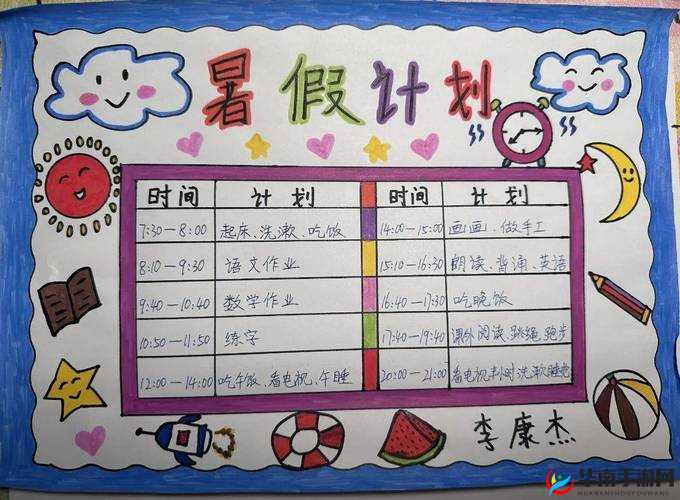 暑假计划
时间 计划 时间 计划
7:30—8:00 起床、洗漱、吃饭 14:00—15:00 画画、做手工
8:10—9:30 语文作业 15:10—16:30 朗读、背诵、英语
9:40—10:40 数学作业 16:40—17:30 吃晚饭
10:50—11:50 练字 17:40—19:40 课外阅读、跳绳、跑步
12:00—14:00 吃午饭、看电视、午睡 20:00—21:00 看电视半小时洗漱睡觉
李康杰
华南手游网
HUANANSHOUYOUWANG